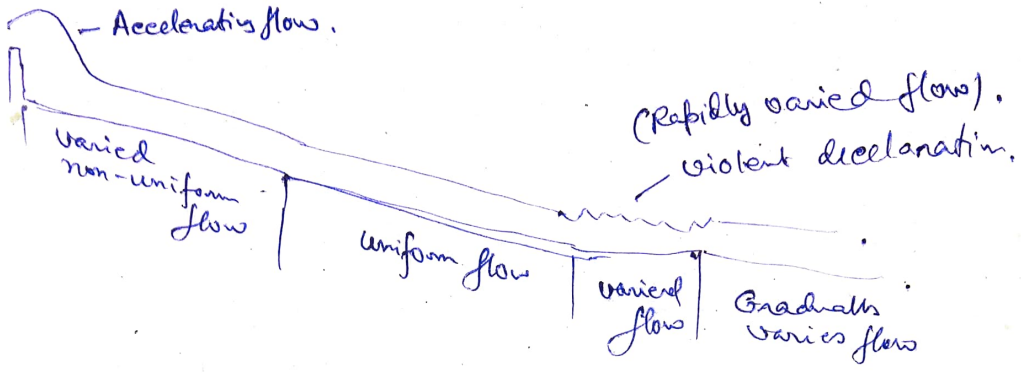 Accelerating flow.
(Rapidly varied flow).
violent decelaration.
varied
non-uniform
flow
uniform flow
varied
flow
Gradually
varies flow